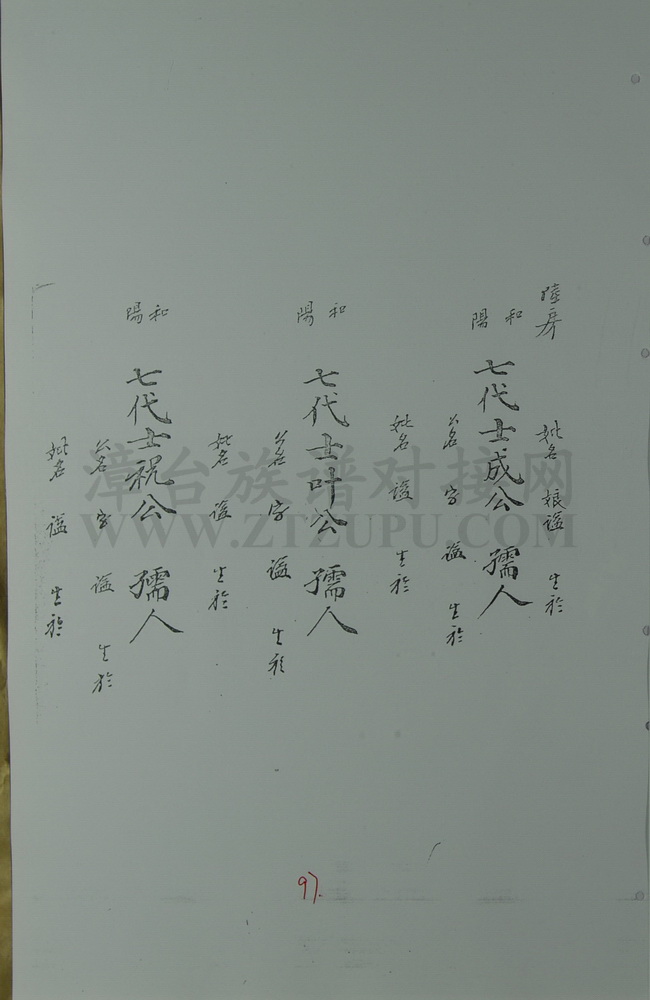 陸房
妣名 娘諡 生於
和陽
七代士成公 孺人
公名 字 諡 生於
妣名 諡 生於
和陽
七代士叶公 孺人
公名 字 諡 生於
妣名 諡 生於
和陽
七代士祝公 孺人
公名 字 諡 生於
妣名 諡 生於
漳台族谱对接网
WWW.ZTZUPU.COM
97.